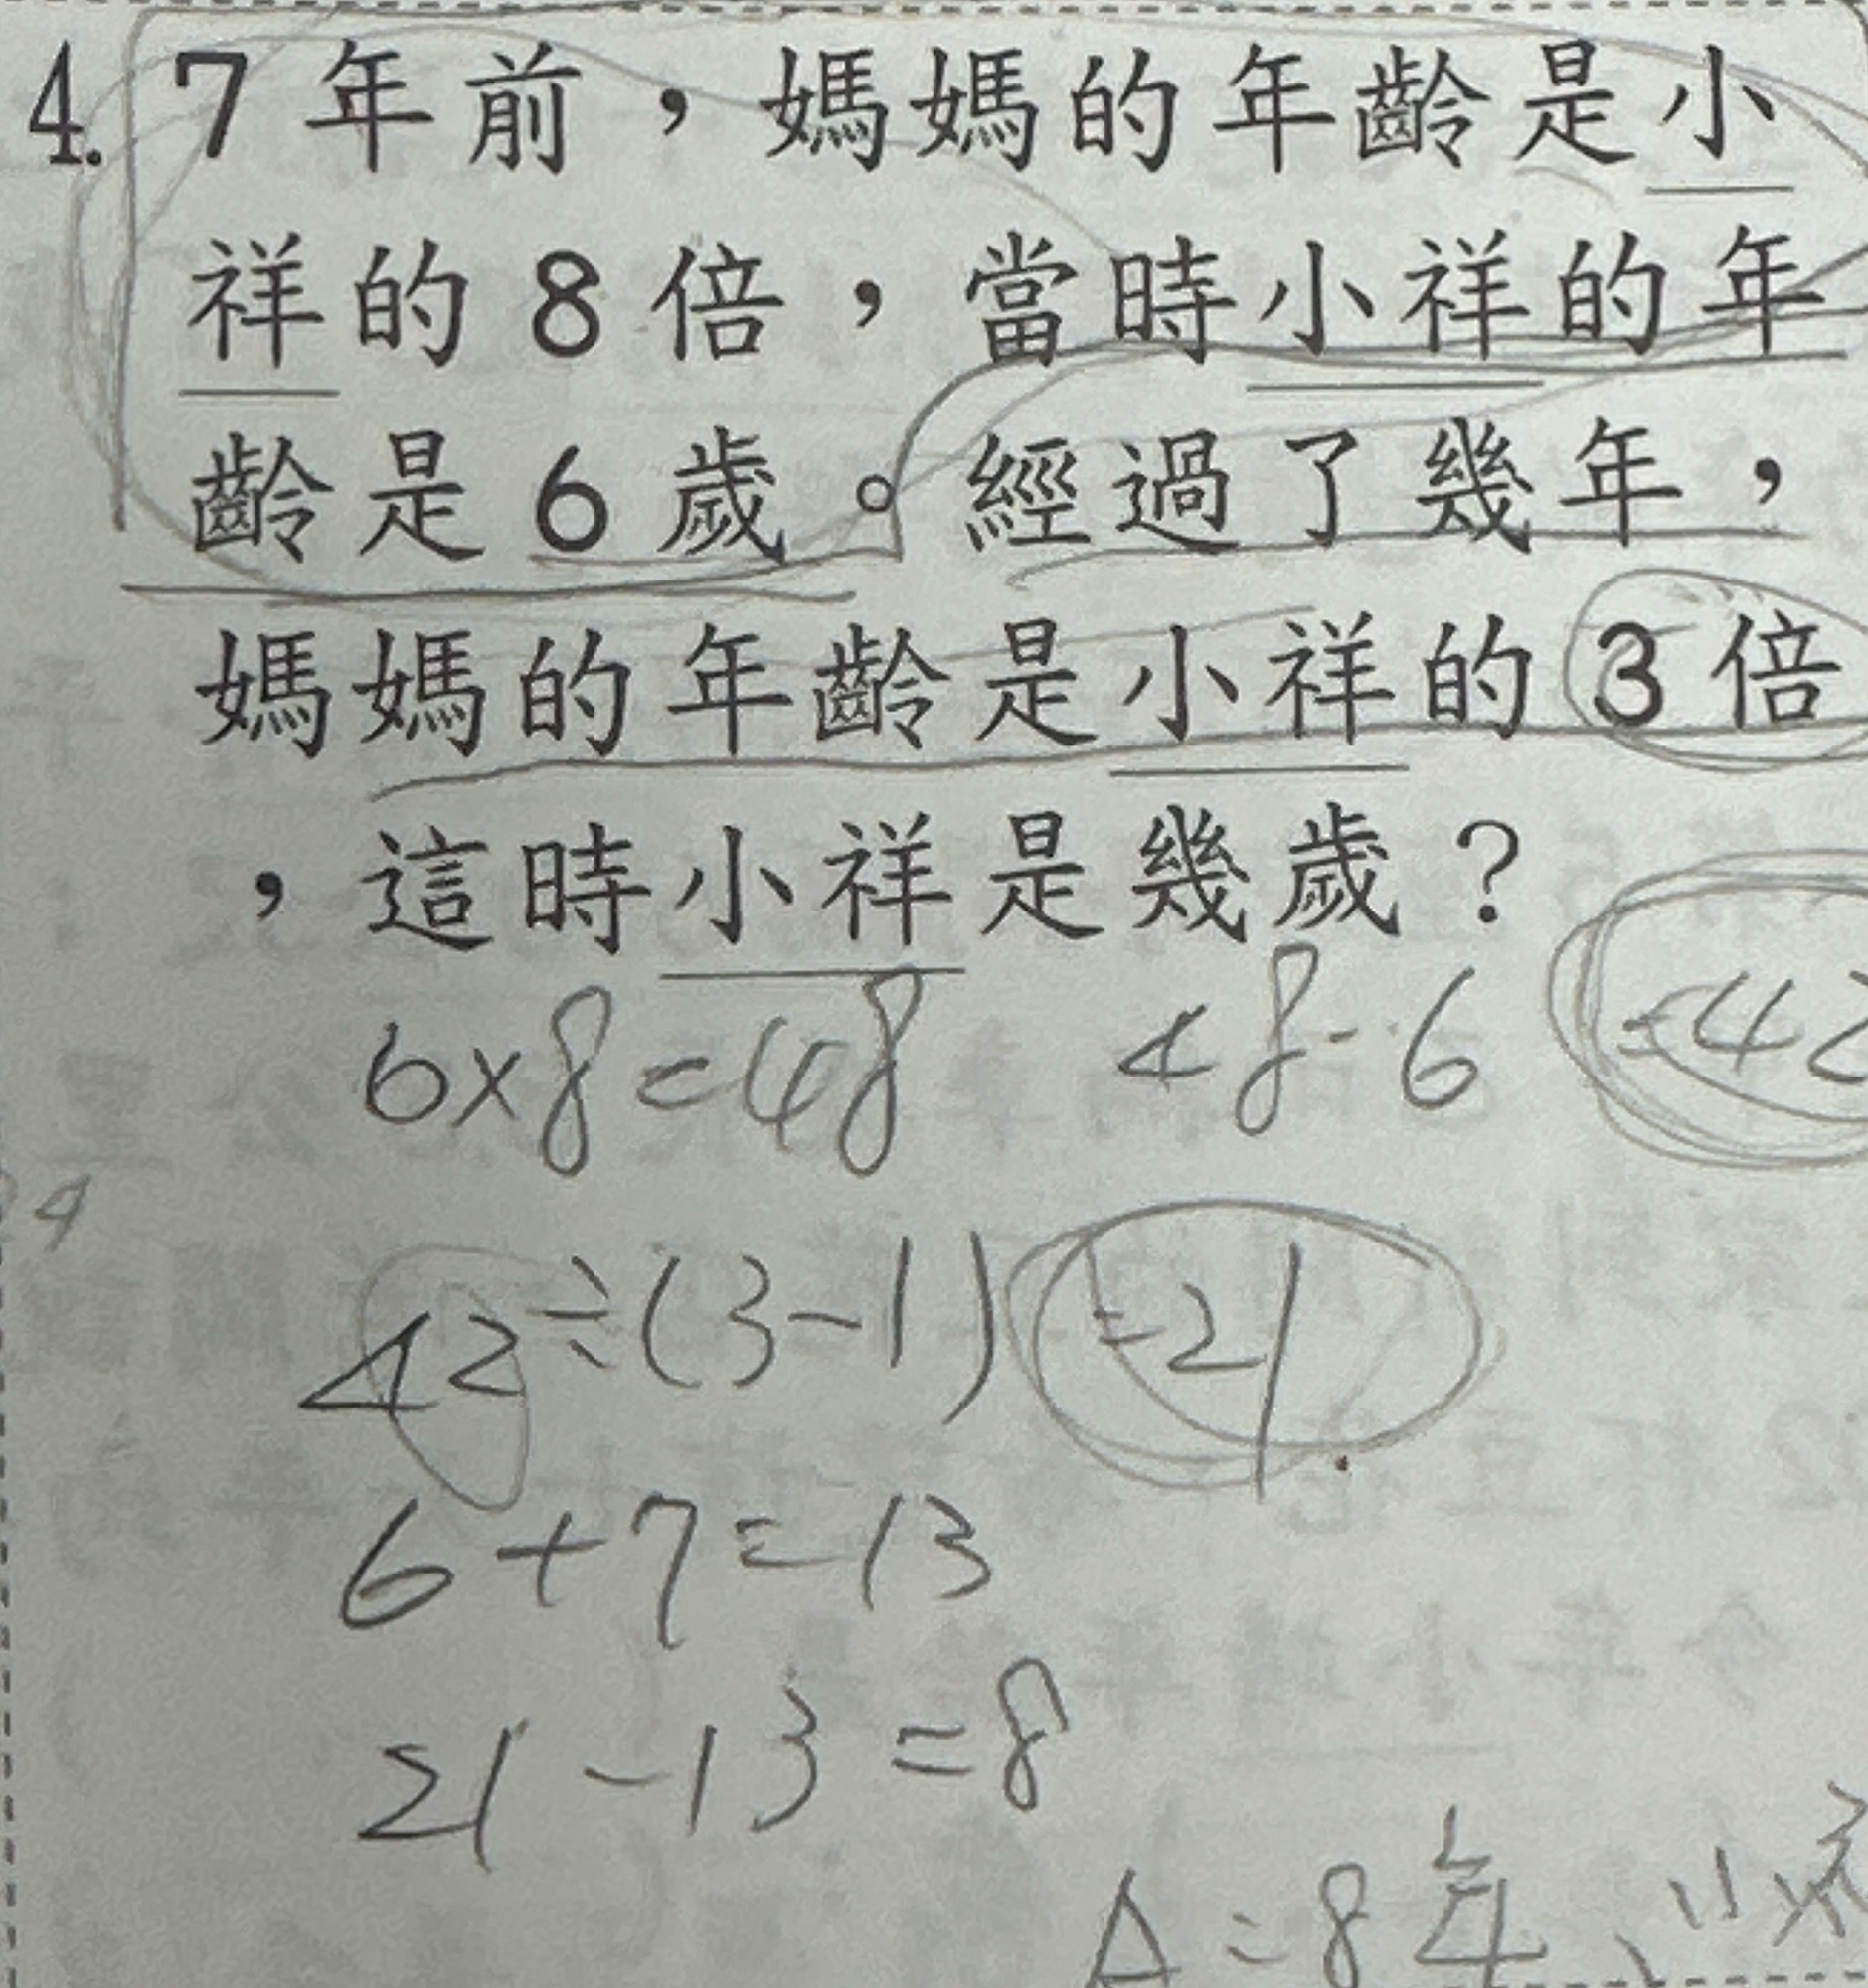 4. 7年前，媽媽的年齡是小
祥的8倍，當時小祥的年
齡是6歲。經過了幾年，
媽媽的年齡是小祥的3倍
，這時小祥是幾歲？
6×8=48 48-6=42
42÷(3-1)=21
6+7=13
21-13=8
A=8年、小